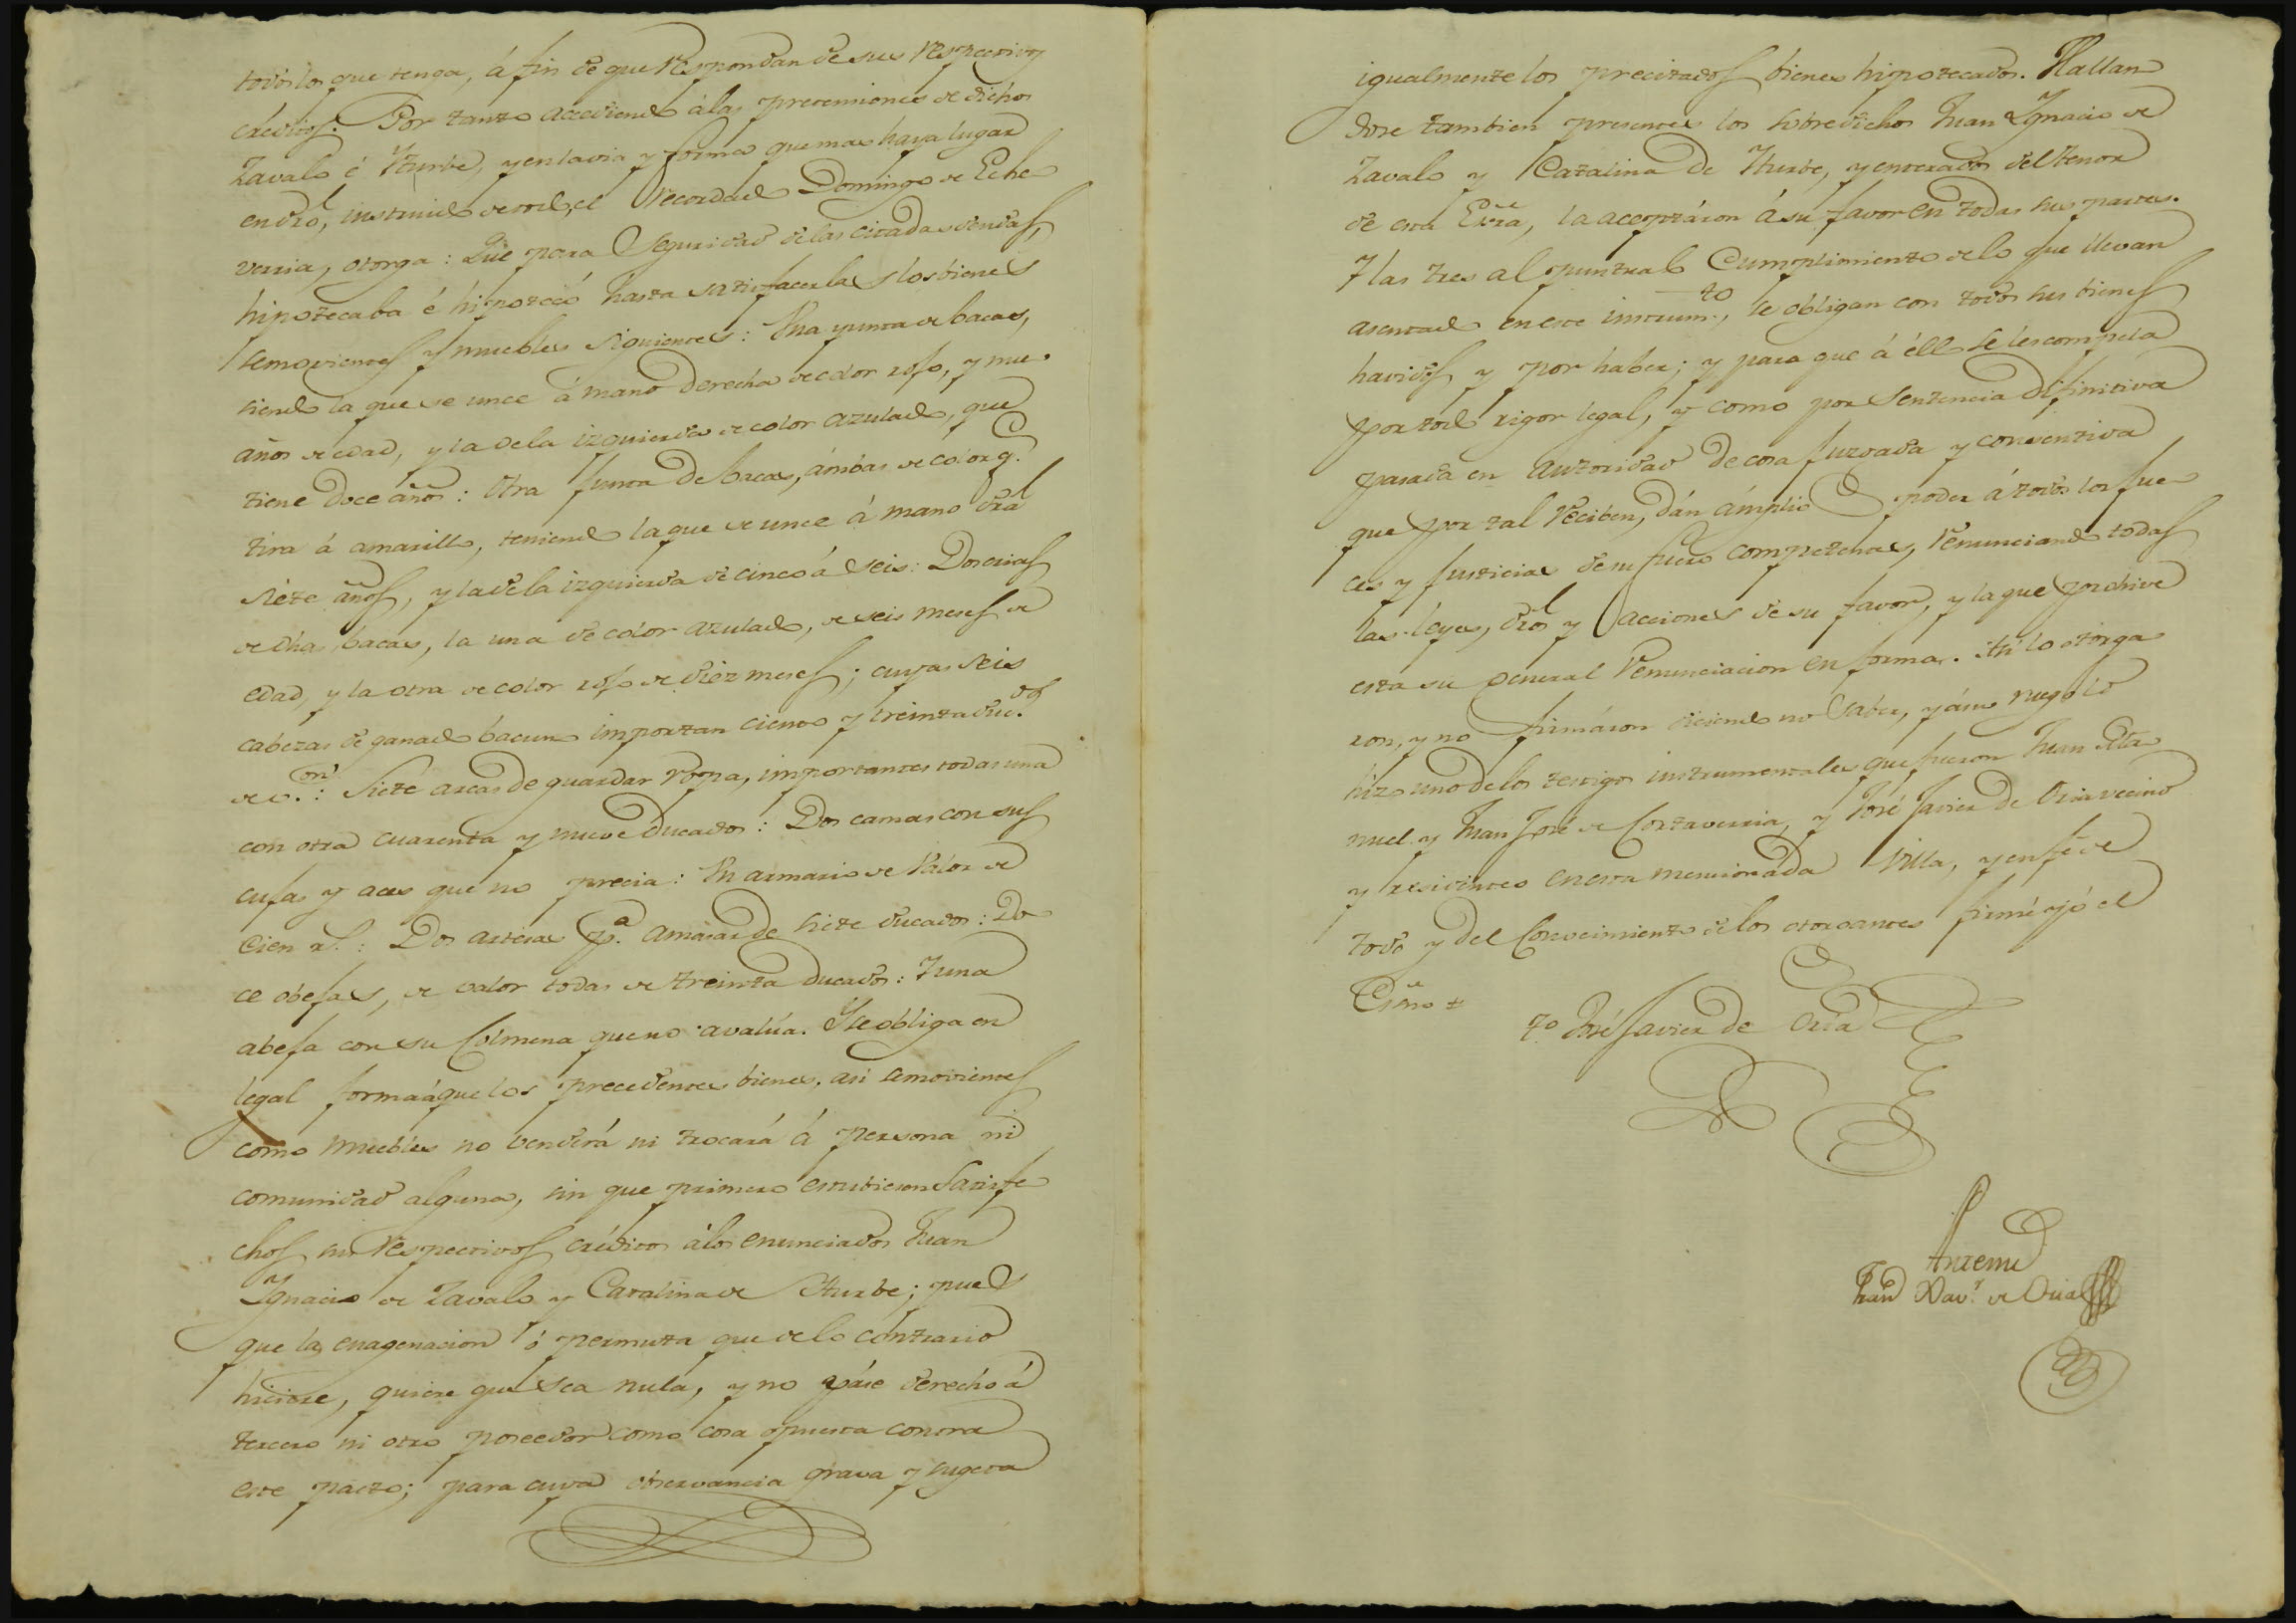 todos los que tenga, á fin de que respondan de sus respectivos
créditos. Por tanto accediendo á las pretensiones de dichos
Zavalo é Yturbe, y en la via y forma que mas haya lugar
en dro, instruido de todo, el recordado Domingo de Eche
verria, otorga: Que para seguridad de las citadas deudas,
hipotecaba é hipotecó hasta satisfacerlas los bienes
semovientes y muebles siguientes: Una yunta de bacas,
siendo la que se unce á mano derecha de color rojo, y nueve
años de edad, y la de la izquierda de color azulado, que
tiene doce años: Otra junta de bacas, ámbas de color q.
tira á amarillo, teniendo la que se unce á mano dra
siete años, y la de la izquierda de cinco á seis: Dos crias
de dhas bacas, la una de color azulado, de seis meses de
edad, y la otra de color rojo de diez meses; cuyas seis
cabezas de ganado bacuno importan ciento y treinta duc.dos
de v.on: Siete arcas de guardar ropa, importantes todas una
con otra cuarenta y nueve ducados: Dos camas con sus
cujas y aces que no precia: Un armario de valor de
cien r.s: Dos artesas p.a amasar de siete ducados: Do
ce obejas, de valor todas de treinta ducados: Y una
abeja con su colmena que no avalúa. Y se obliga en
legal forma á que los precedentes bienes, asi semovientes
como muebles no venderá ni trocará á persona ni
comunidad alguna, sin que primero estubiesen satisfe
chos sus respectivos créditos á los enunciados Juan
Ygnacio de Zavalo y Catalina de Yturbe; pues
que la enagenacion ó permuta que de lo contrario
hiciere, quiere que sea nula, y no páse derecho á
tercero ni otro poseedor como cosa opuesta contra
este pacto; para cuya observancia grava y sugeta
igualmente los precitados bienes hipotecados. Hallan
dose tambien presentes los sobredichos Juan Ygnacio de
Zavalo y Catalina de Yturbe, y enterados del tenor
de esta Esra, la aceptáron á su favor en todas sus partes.
Y las tres al puntual cumplimiento de lo que llevan
asentado en este instrum.to, se obligan con todos sus bienes
havidos y por haber; y para que á éllo se les compela
por todo rigor legal, y como por sentencia difinitiva
pasada en autoridad de cosa juzgada y consentida,
que por tal reciben, dán ámplio poder á todos los jue
ces y justicias de su fuero competentes, renunciando todas
las leyes, dros y acciones de su favor, y la que prohive
esta su general renunciacion en forma. Asi lo otorga
ron, y no firmáron diciendo no saber, y á su ruego lo
hizo uno de los testigos instrumentales que fueron Juan
nuel y Juan José de Cortaverria, y José Javier de Oria vecino
y residentes en esta mencionada Villa, y en fe de
todo y del conocimiento de los otorgantes firmé yo el
Esno =
t.o José Javier de Oria
Ante mi
Juan Xav.r de Oria